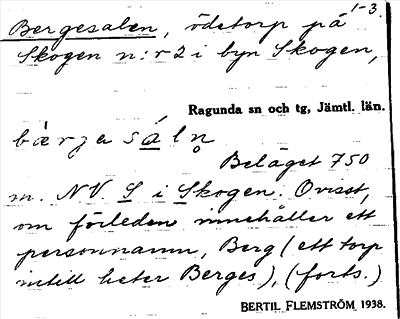 1-3.
Bergesalen, ödetorp på
Skogen n:r 2 i byn Skogen,
Ragunda sn och tg, Jämtl. län.
bærjasáln̥
Beläget 750
m. NV. S i Skogen. Ovisst,
om förleden innehåller ett
personnamn, Berg (ett torp
intill heter Berges), (forts.)
BERTIL FLEMSTRÖM 1938.